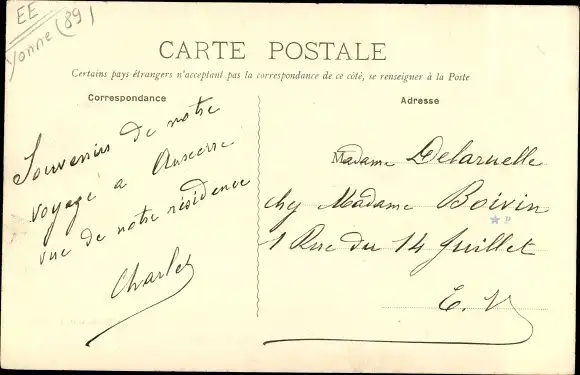 EE
Yonne (89)
CARTE POSTALE
Certains pays étrangers n'acceptant pas la correspondance de ce côté, se renseigner à la Poste
Correspondance
Souvenirs de notre
voyage a Auxerre
vue de notre résidence
Charles
Adresse
Madame Delaruelle
chy Madame Boivin
P
1 Rue du 14 Juillet
E. V